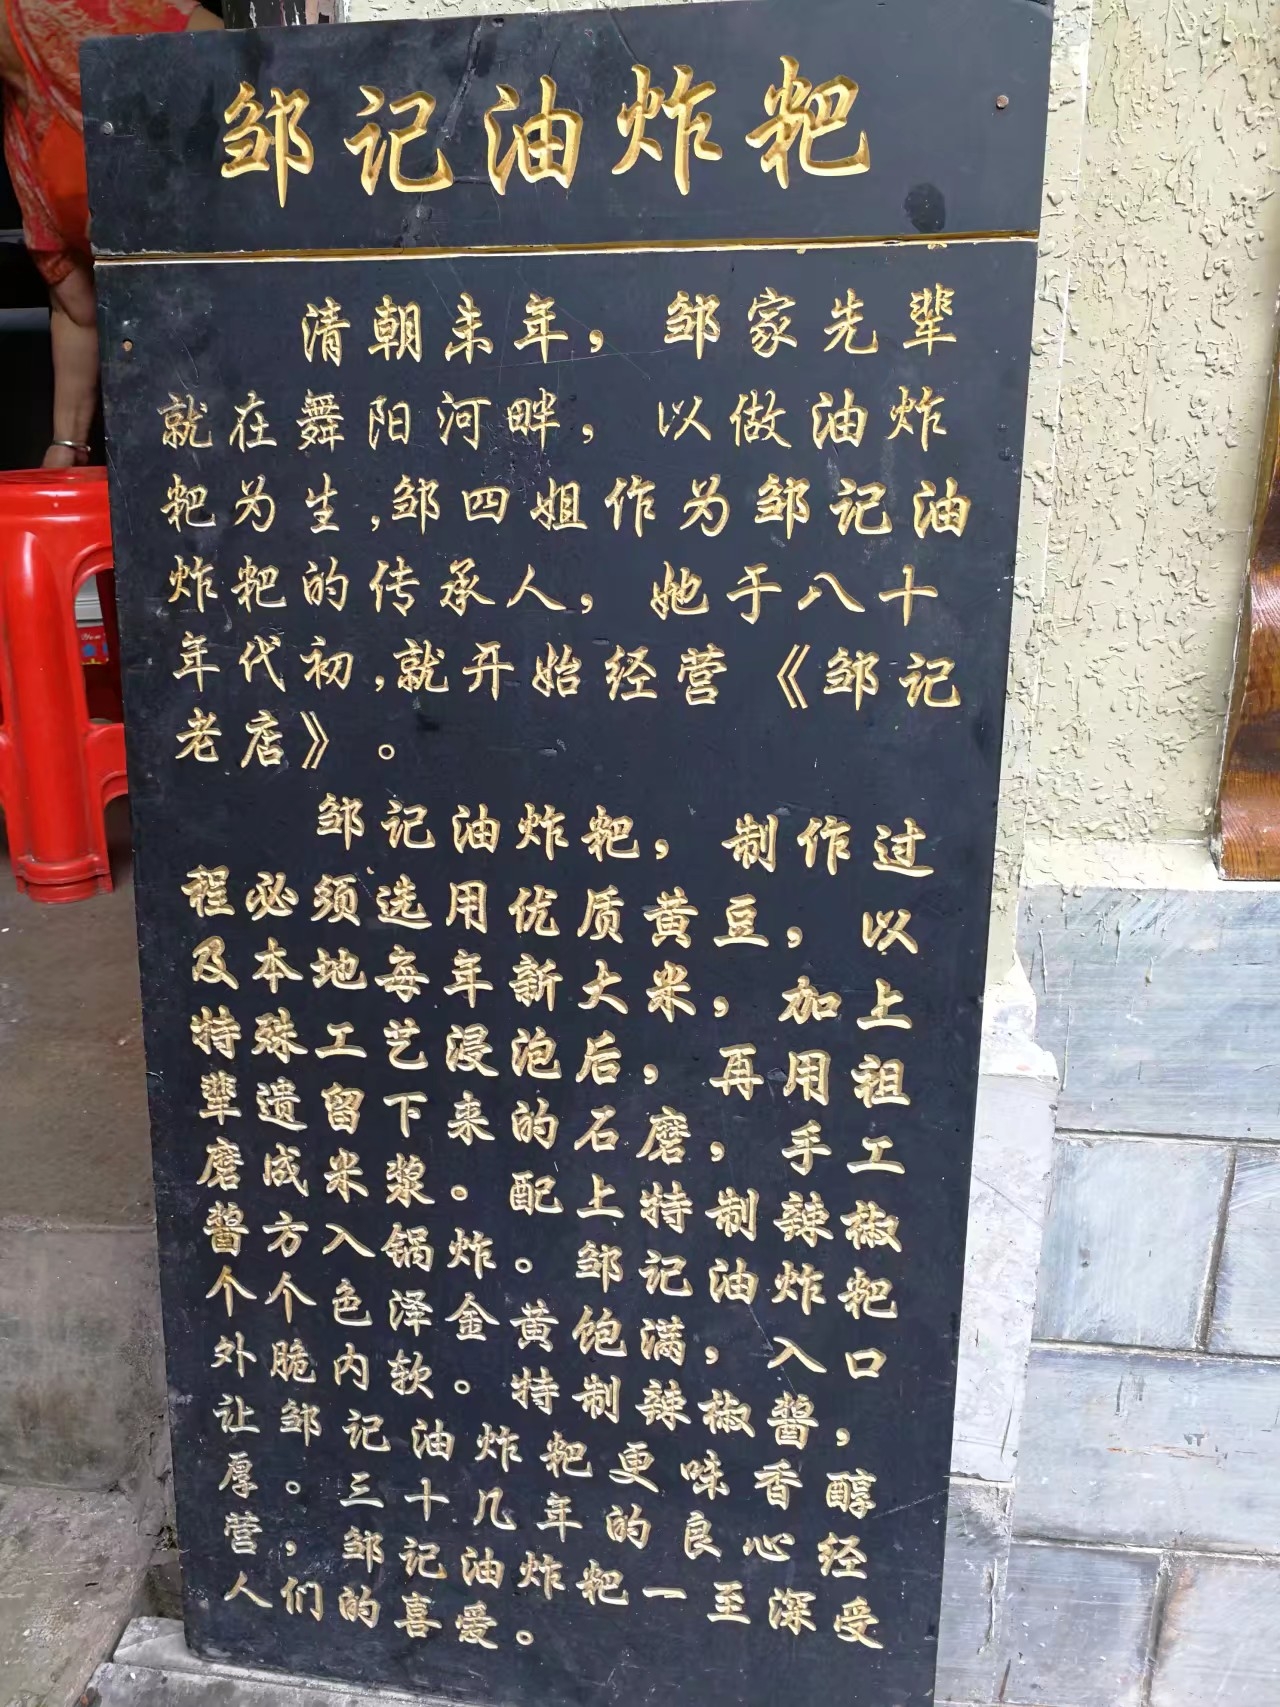 邹记油炸粑
清朝末年，邹家先辈
就在舞阳河畔，以做油炸
粑为生,邹四姐作为邹记油
炸粑的传承人，她于八十
年代初,就开始经营《邹记
老店》。
邹记油炸粑，制作过
程必须选用优质黄豆，以
及本地每年新大米，加上
特殊工艺浸泡后，再用祖
辈遗留下来的石磨，手工
磨成米浆。配上特制辣椒
酱方入锅炸。邹记油炸粑
个个色泽金黄饱满，入口
外脆内软。特制辣椒酱，
让邹记油炸粑更味香醇
厚。三十几年的良心经
营，邹记油炸粑一至深受
人们的喜爱。